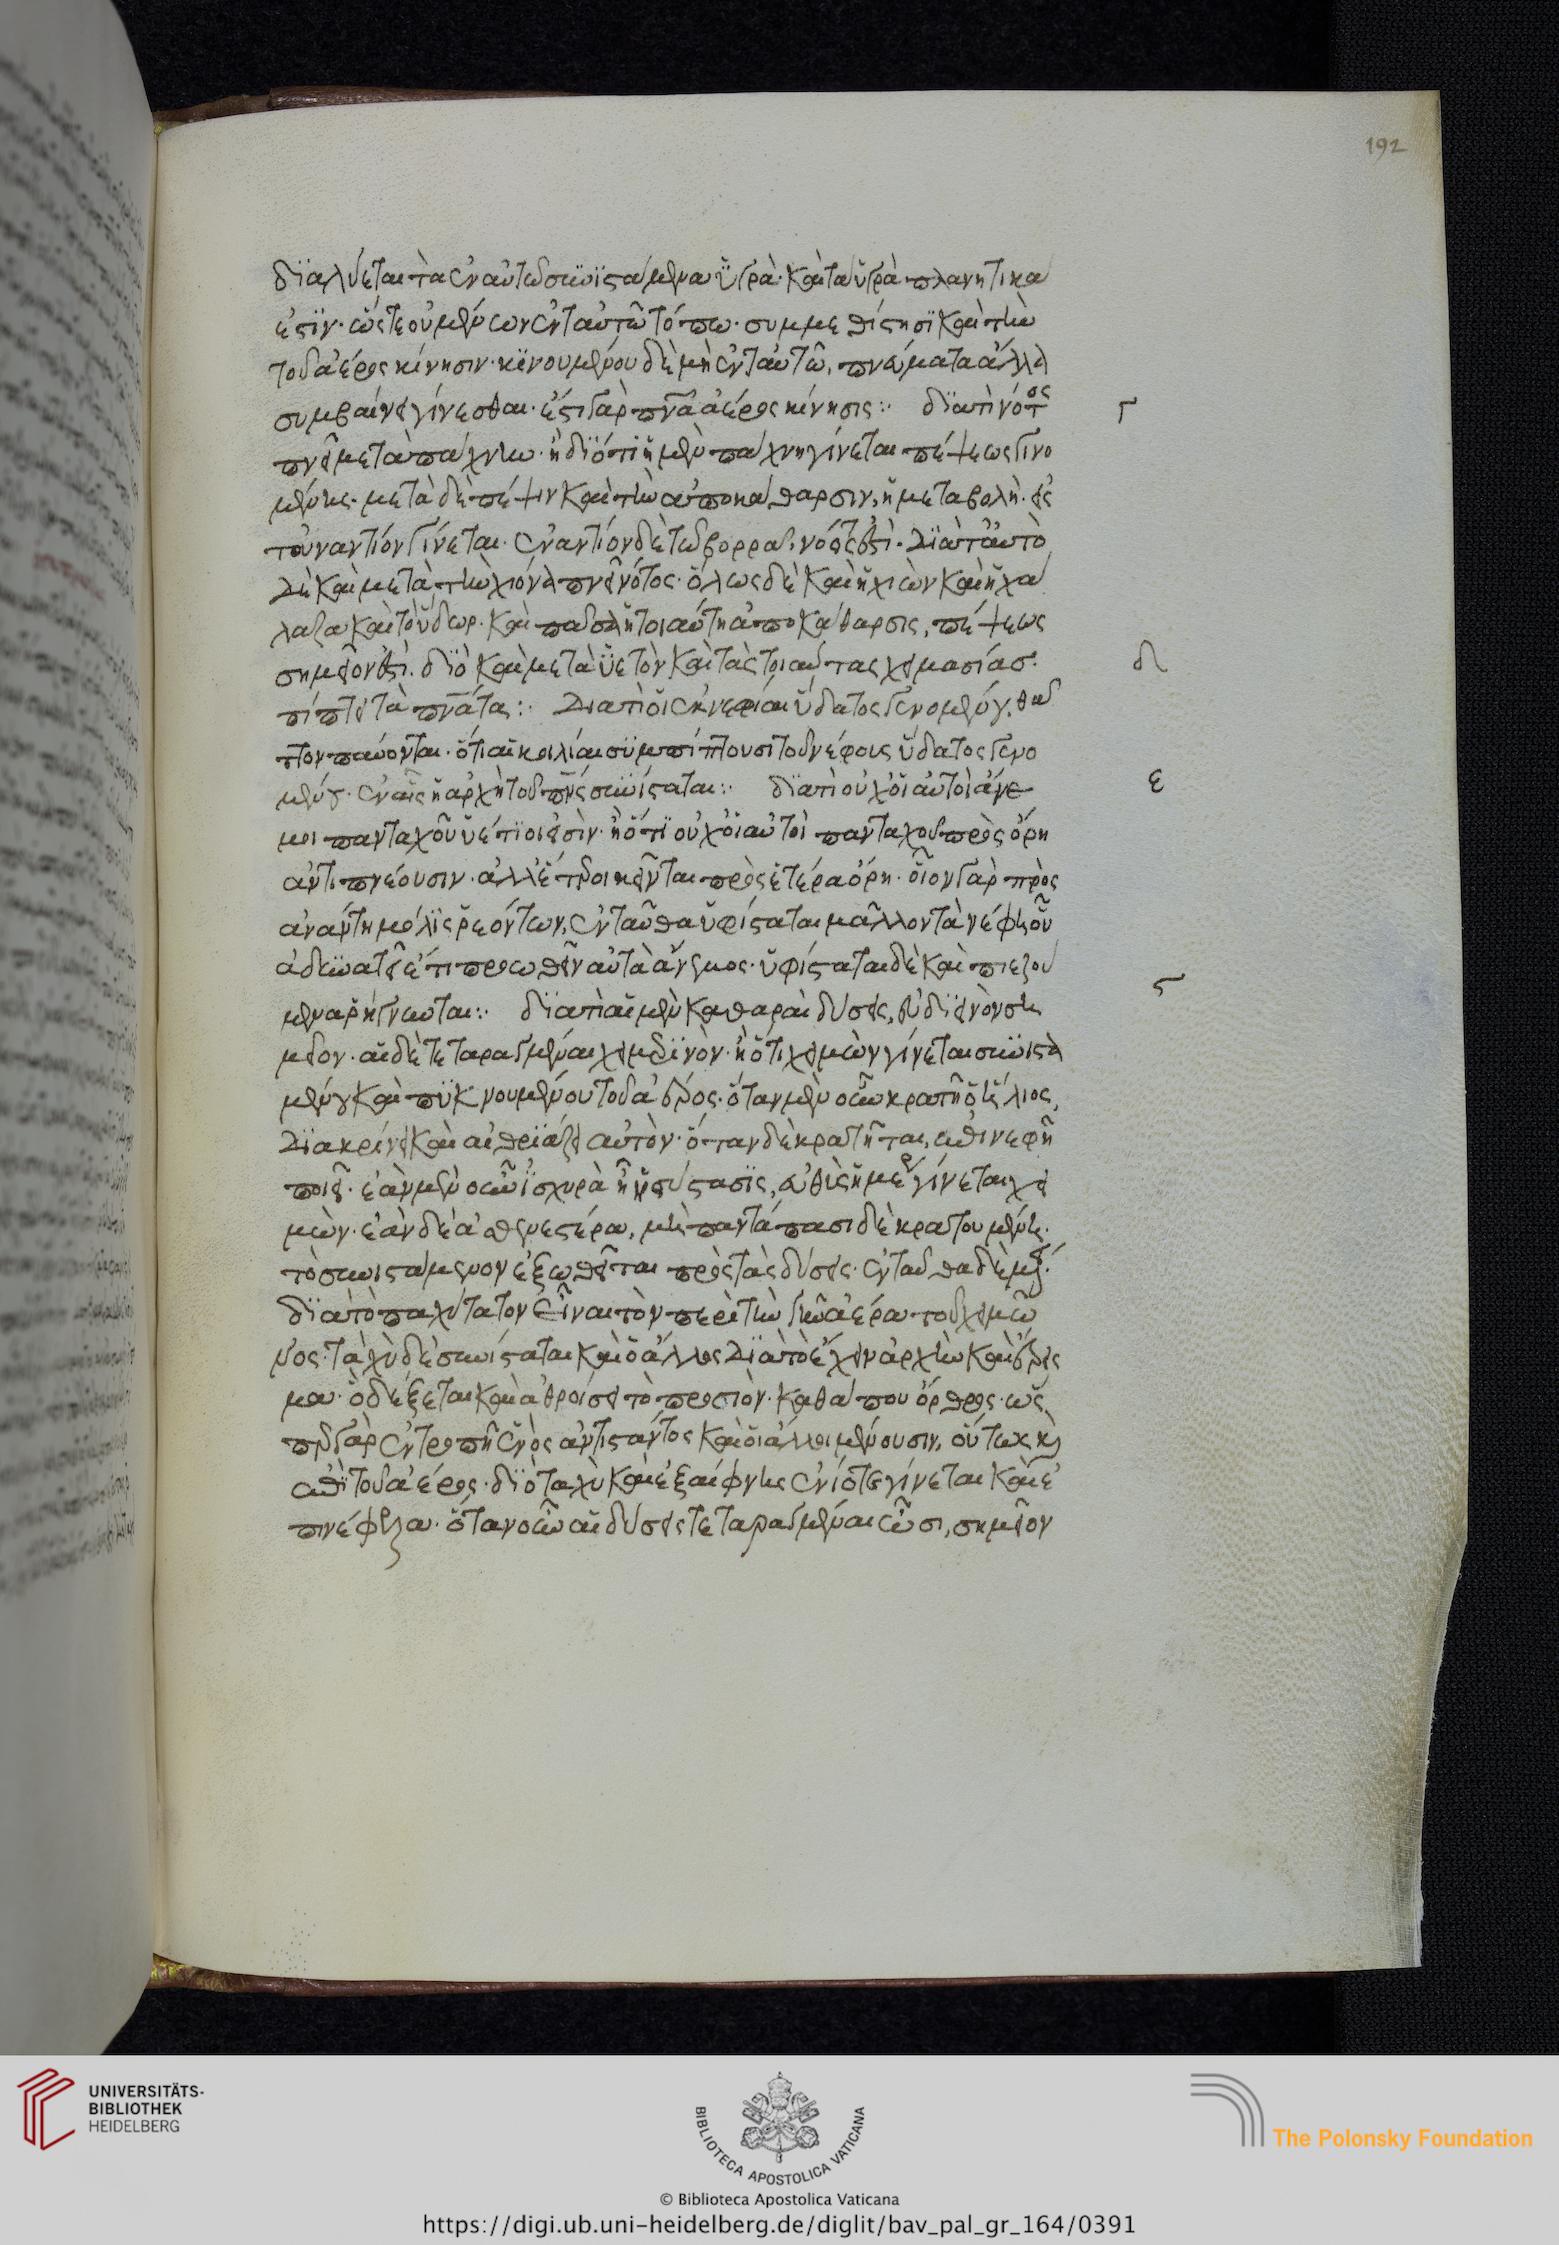 διαλύεται τὰ ἐν αὐτῶ συνϊστάμενα ὑγρὰ· καὶ τὰ ὑγρὰ πλανητικά
ἐστϊν· ὥστε οὐ μένων ἐν ταὐτῶ τόπω· συμμεθίστησϊ καὶ τὴν
τοῦ ἀέρος κίνησιν· κϊνουμένου δὲ μὴ ἐν ταὐτῶ, πνεύματα ἀλλὰ
συμβαίνει γίνεσθαι· ἔστι γὰρ πνᾶ ἀέρος κίνησις:· δϊατὶ νότος
πνεῖ μετὰ πάχνην· ἢ δϊότι ἡ μὲν πάχνη γίνεται πέψεως γινο
μένης· μετὰ δὲ πέψιν καὶ τὴν ἀποκάθαρσιν, ἡ μεταβολὴ· εἰς
τοὐναντίον γίνεται· ἐναντίον δὲ τῶ βορρᾶ, νότός ἐστὶ· διατ' αυτὸ
δὲ καὶ μετὰ τὴν χιόνα πνεῖ νότος· ὅλως δὲ καὶ ἡ χιὼν καὶ ἡ χά
λαζα καὶ τὸ ὕδωρ· καὶ πᾶσα ἡ τοιαύτη ἀποκάθαρσις, πέψεως
σημεῖον ἐστὶ. διὸ καὶ μετὰ ὑετὸν καὶ τὰς τοιαύτας χειμασίασ·
πίπτει τὰ πνᾶτα:· Διατὶ οἱ ἐκνεφίαι ὕδατος γενομένου, θᾶτ
τον παύονται· ὅτι αἱ κοιλίαι συμπίπτουσι τοῦ νέφους ὕδατος γενο
μένου· ἐν αἷς ἡ ἀρχὴ τοῦ πνς συνΐσταται:· δϊατὶ οὐχ' οἱ αὐτοὶ ἄνε
μοι πανταχοῦ ὑέτϊοι εἰσὶν· ἢ ὅτϊ οὐχ' οἱ αὐτοὶ πανταχοῦ πρὸς ὄρη
ἀντιπνέουσιν· ἀλλ' ἕτεροι κεῖνται πρὸς ἕτερα ὄρη· οἷον γὰρ πρὸς
ἀνάντη μόλϊς ῥεόντων, ἐνταῦθα ὑφίσταται μᾶλλον τὰ νέφη οὗ
ἀδυνατεῖ ἔτι προωθεῖν αὐτὰ ἄνεμος· ὑφίσταται δὲ καὶ πιεζού
μενα ῥήγνυται:· δϊατὶ αἱ μὲν καθαραὶ δύσεις, εὐδϊεινὸν ση
μεῖον· αἱ δὲ τεταραγμέναι χειμερϊνὸν· ἢ ὅτι χειμὼν γίνεται συνϊστα
μένου καὶ πϋκνουμένου τοῦ ἀέρος· ὅταν μὲν οὖν κρατῆ ὁ ἥλιος,
διακρίνει καὶ αἰθριάζει αὐτὸν· ὅταν δὲ κρατῆται, ἐπινεφῆ
ποιεῖ· ἐὰν μὲν οὖν ἰσχυρὰ ἦ ἡ σύστασϊς, εὐθὺς ἡμέρ γίνεται χει
μὼν· ἐὰν δὲ ἀσθενεστέρα, μὴ παντάπασι δὲ κρατουμένη·
τὸ συνιστάμενον ἐξωθεῖται πρὸς τὰς δύσεις· ἐνταῦθα δὲ μένει·
δϊὰ τὸ παχύτατον εἶναι τὸν περὶ τὴν γῆν ἀέρα τοῦ χειμῶ
νος· ταχὺ δὲ συνίσταται καὶ ὁ ἄλλος διὰ τὸ ἔχειν ἀρχὴν καὶ ἔρεισ
μα· ὃ δέξεται καὶ ἀθροίσει τὸ προσιὸν· καθάπου ὄρθρος· ὥσ
περ γὰρ ἐν τροπῆ ἑνὸς ἀντιστάντος καὶ οἱ ἄλλοι μένουσιν, οὕτως κ
ἐπὶ τοῦ ἀέρος· διὸ ταχὺ καὶ ἐξαίφνης ἐνίοτε γίνεται καὶ ἐ
πινέφελα· ὅταν οὖν αἱ δύσεις τεταραγμέναι ὦσι, σημεῖον
γ
δ
ε
ϛ
192
UNIVERSITÄTS-
BIBLIOTHEK
HEIDELBERG
BIBLIOTECA APOSTOLICA VATICANA
© Biblioteca Apostolica Vaticana
The Polonsky Foundation
https://digi.ub.uni-heidelberg.de/diglit/bav_pal_gr_164/0391